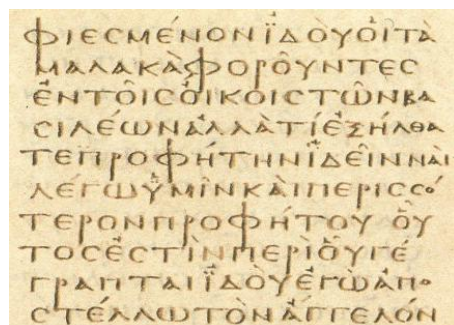 φιεσμένον ϊδοὺ οἱ τὰ
μαλακὰ φοροῦντες
ἐν τοῖς οἴκοις τῶν βα
σιλέων ἀλλὰ τί ἐξήλθα
τε προφήτην ϊδεῖν ναὶ
λέγω ϋμῖν καὶ περισσό
τερον προφήτου οὗ
τός ἐστιν περὶ οὗ γέ
γραπται ϊδοὺ ἐγὼ ἀπο
στέλλω τὸν ἄγγελόν